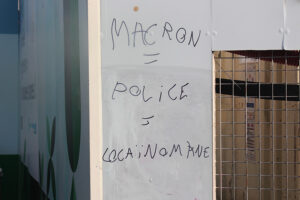 MACRON
=
POLiCE
=
COCAiNOMANE